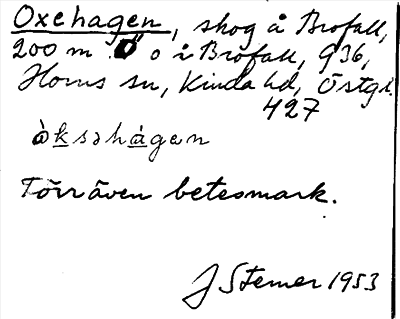 Oxehagen, skog å Brofall,
200 m Ö o i Brofall, 936,
Horns sn, Kinda hd, Östgl.
427
òksəhàgen
Törräven betesmark.
J Stemer 1953